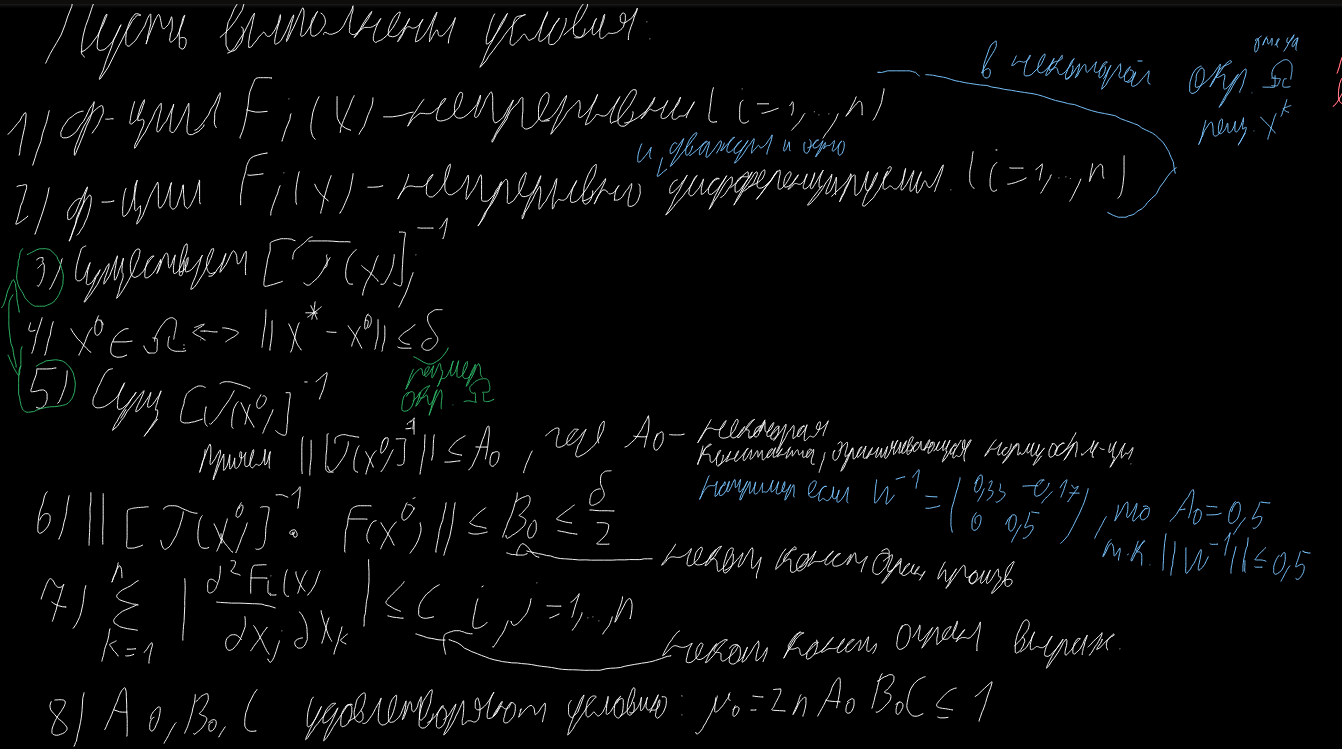 Пусть выполнены условия:
1) ф-ции F_i(x) – непрерывны (i=1,...,n)
в некоторой окр. Ω омега
реш. x^k
и дважды и одно
2) ф-ции F_i(x) – непрерывно дифференцируемы. (i=1,...,n)
3) Существует [J(x)]^{-1}
4) x^0 ∈ Ω <-> ||x^* - x^0|| ≤ δ
размер
окр. Ω
5) Сущ [J(x^0)]^{-1}
причем ||[J(x^0)]^{-1}|| ≤ A_0, где A_0 – некоторая
константа, ограничивающая норму обр м-цы.
например если W^{-1} = (0,33 -0,17
0 0,5), то A_0=0,5
т.к. ||W^{-1}|| ≤ 0,5
6) ||[J(x^0)]^{-1} · F(x^0)|| ≤ B_0 ≤ δ/2
неком конст огран произв
7) Σ_{k=1}^{n} |∂²F_i(x)/∂x_j ∂x_k| ≤ C i, j = 1,...,n
неком конст огран выраж.
8) A_0, B_0, C удовлетворяют условию: μ_0 = 2nA_0B_0C ≤ 1